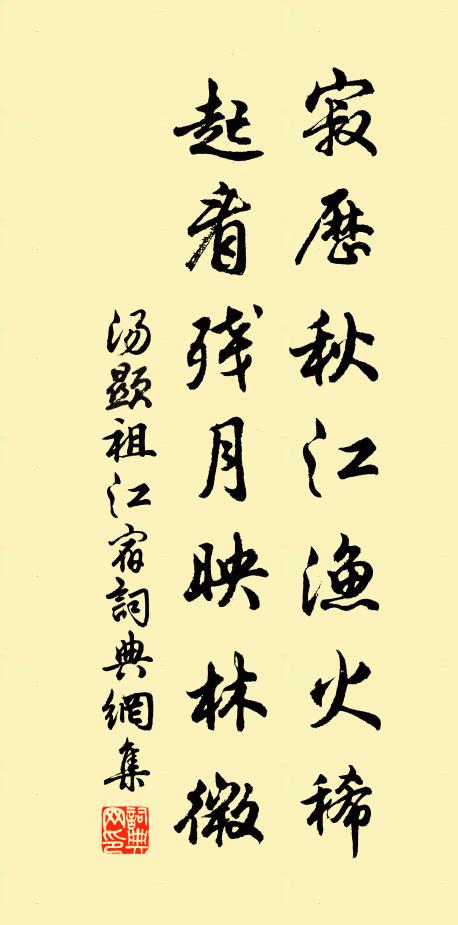 寂歷秋江漁火稀
起看殘月映林微
汤顯祖江宿詞典網集
詞典网印